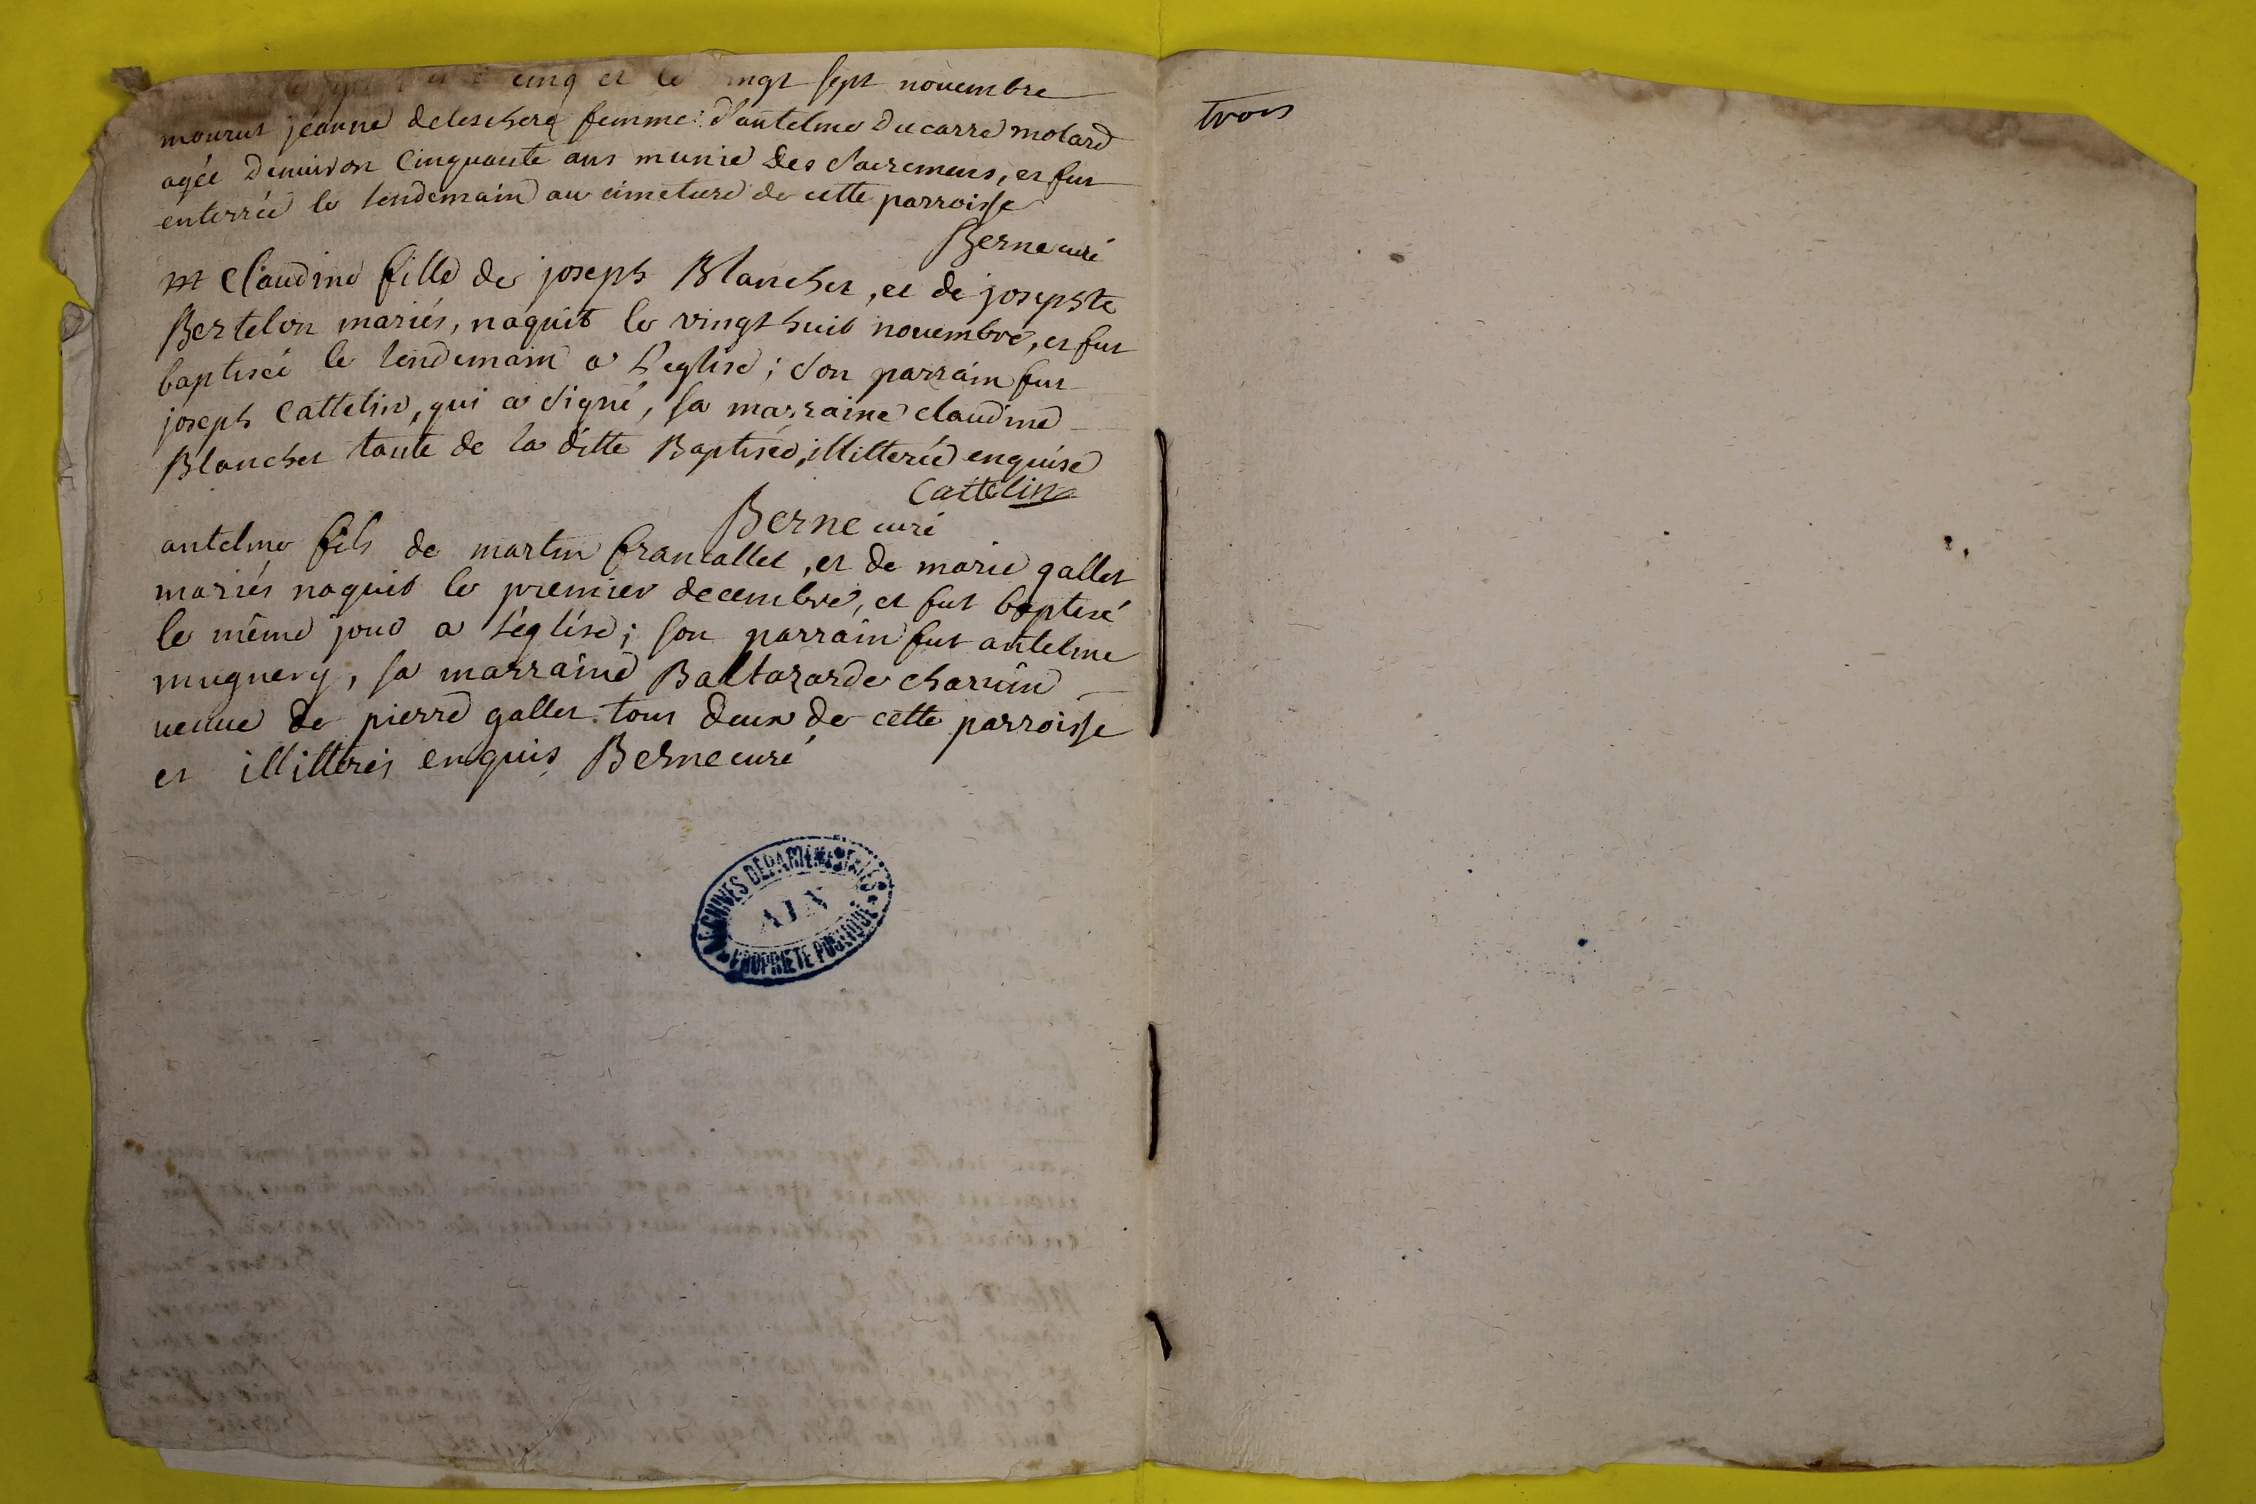 cinq et le vingt sept novembre
mourut jeanne delescherq femme d'antelme ducarre molard
agée denuiron cinquante ans munie des sacremens, et fut
enterrée le lendemain au cimetiere de cette parroisse
Berne curé
claudine fille de joseph Blanchet, et de josephte
Bertelon mariés, naquit le vingt huit novembre, et fut
baptisée le lendemain a l'eglise; son parrain fut
joseph Cattelin, qui a signé, sa marraine claudine
Blanchet tante de la ditte Baptisée, illitterée enquise
Cattelin
Berne curé
antelme fils de martin francallet, et de marie gallet
mariés naquit le premier decembre, et fut baptisé
le même jour a l'église; son parrain fut antelme
mugnery, sa marraine Baltazarde charuin
ueuue de pierre gallet tous deux de cette parroisse
et illitterés enquis Berne curé
ARCHIVES DÉPARTEMENTALES
AIN
PROPRIÉTÉ PUBLIQUE
trois